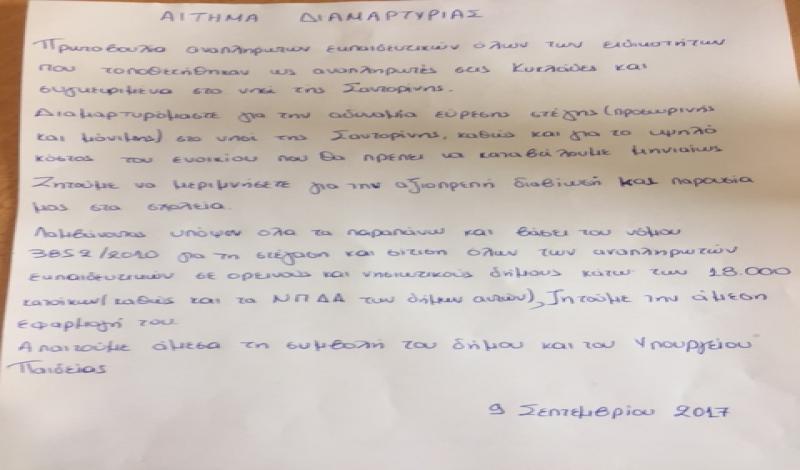 ΑΙΤΗΜΑ ΔΙΑΜΑΡΤΥΡΙΑΣ
Πρωτοβουλία αναπληρωτών εκπαιδευτικών όλων των ειδικοτήτων
που τοποθετήθηκαν ως αναπληρωτές στις Κυκλάδες και
συγκεκριμένα στο νησί της Σαντορίνης.
Διαμαρτυρόμαστε για την αδυναμία εύρεσης στέγης (προσωρινής
και μόνιμης) στο νησί της Σαντορίνης, καθώς και για το υψηλό
κόστος του ενοικίου που θα πρέπει να καταβάλουμε μηνιαίως
Ζητούμε να μεριμνήσετε για την αξιοπρεπή διαβίωσή και παρουσία
μας στα σχολεία.
Λαμβάνοντας υπόψιν όλα τα παραπάνω και βάσει του νόμου
3852/2010 για τη στέγαση και σίτιση όλων των αναπληρωτών
εκπαιδευτικών σε ορεινούς και νησιωτικούς δήμους κάτω των 18.000
κατοίκων (καθώς και τα ΝΠΔΔ των δήμων αυτών), ζητούμε την άμεση
εφαρμογή του.
Απαιτούμε άμεσα τη συμβολή του δήμου και του Υπουργείου
Παιδείας
9 Σεπτεμβρίου 2017